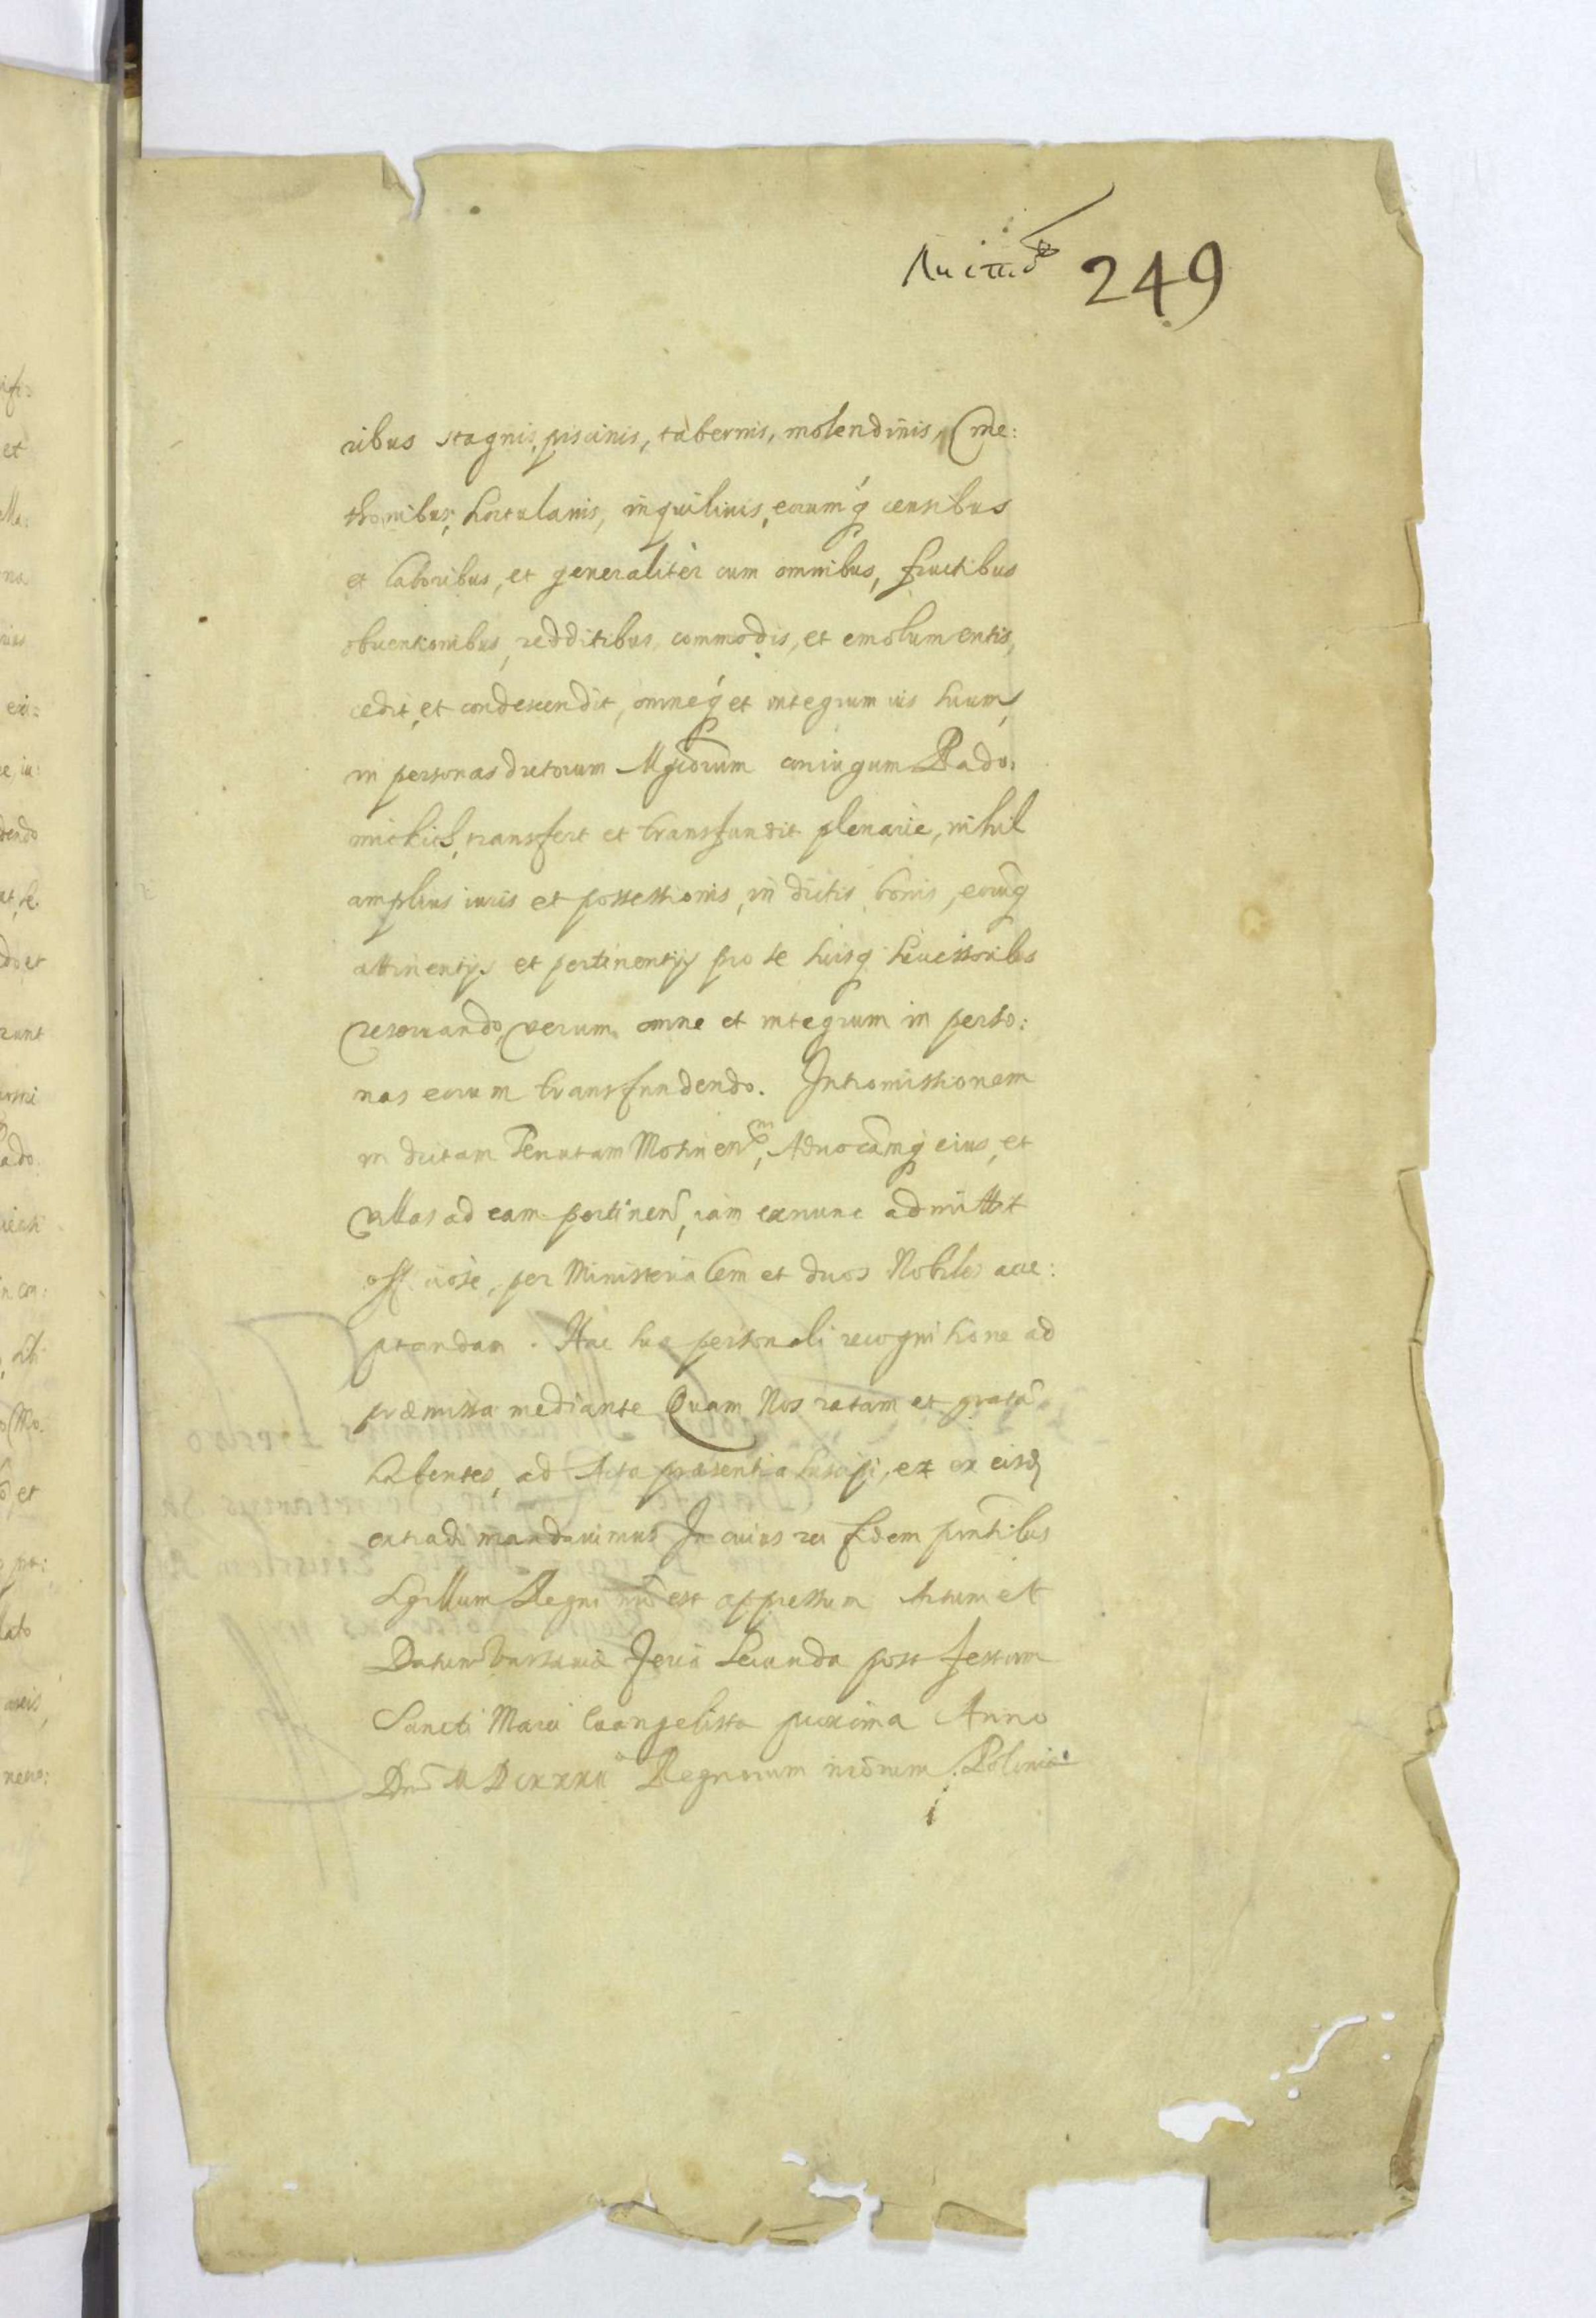 249
ribus stagnis, piscinis, tabernis, molendinis, Cme:
thonibus, hortulanis, inquilinis, eorumq́ censibus
et laboribus, et generalitèr cum omnibus, fructibus
obuentionibus, redditibus, commodis, et emolumentis,
cedit, et condescendit, omneq́ et integrum ius suum,
in personas dictorum Mgcorum coniugum Rado:
mickich, transfert et transfundit plenarie, nihil
amplius iuris et possessionis, in dictis bonis, eorumq
attinentijs et pertinentijs pro se suisq successoribus
reservando, verum omne et integrum in perso:
nas eorum transfundendo. Intromissionem
in dictam Tenutam Mostinensem, Aduocamq eius, et
villas ad eam pertinen, iam exnunc admittit
officiose, per Ministerialem et duos Nobiles acce:
ptandam. Hac sua personali recognitione ad
præmissa mediante Quam Nos ratam et gratam
habentes, ad Acta præsentia suscipi, et ex eisd
extradi mandauimus In cuius rei fidem pntibus
Sigillum Regni nrm est appressum Actum et
Datum Varsauiæ Feria Secunda post festum
Sancti Marci Euangelistæ proxima Anno
Dni MDCXXXII Regnorum nrorum Poloniæ